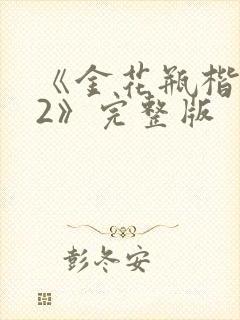 《金花瓶楷
2》完整版
彭冬安